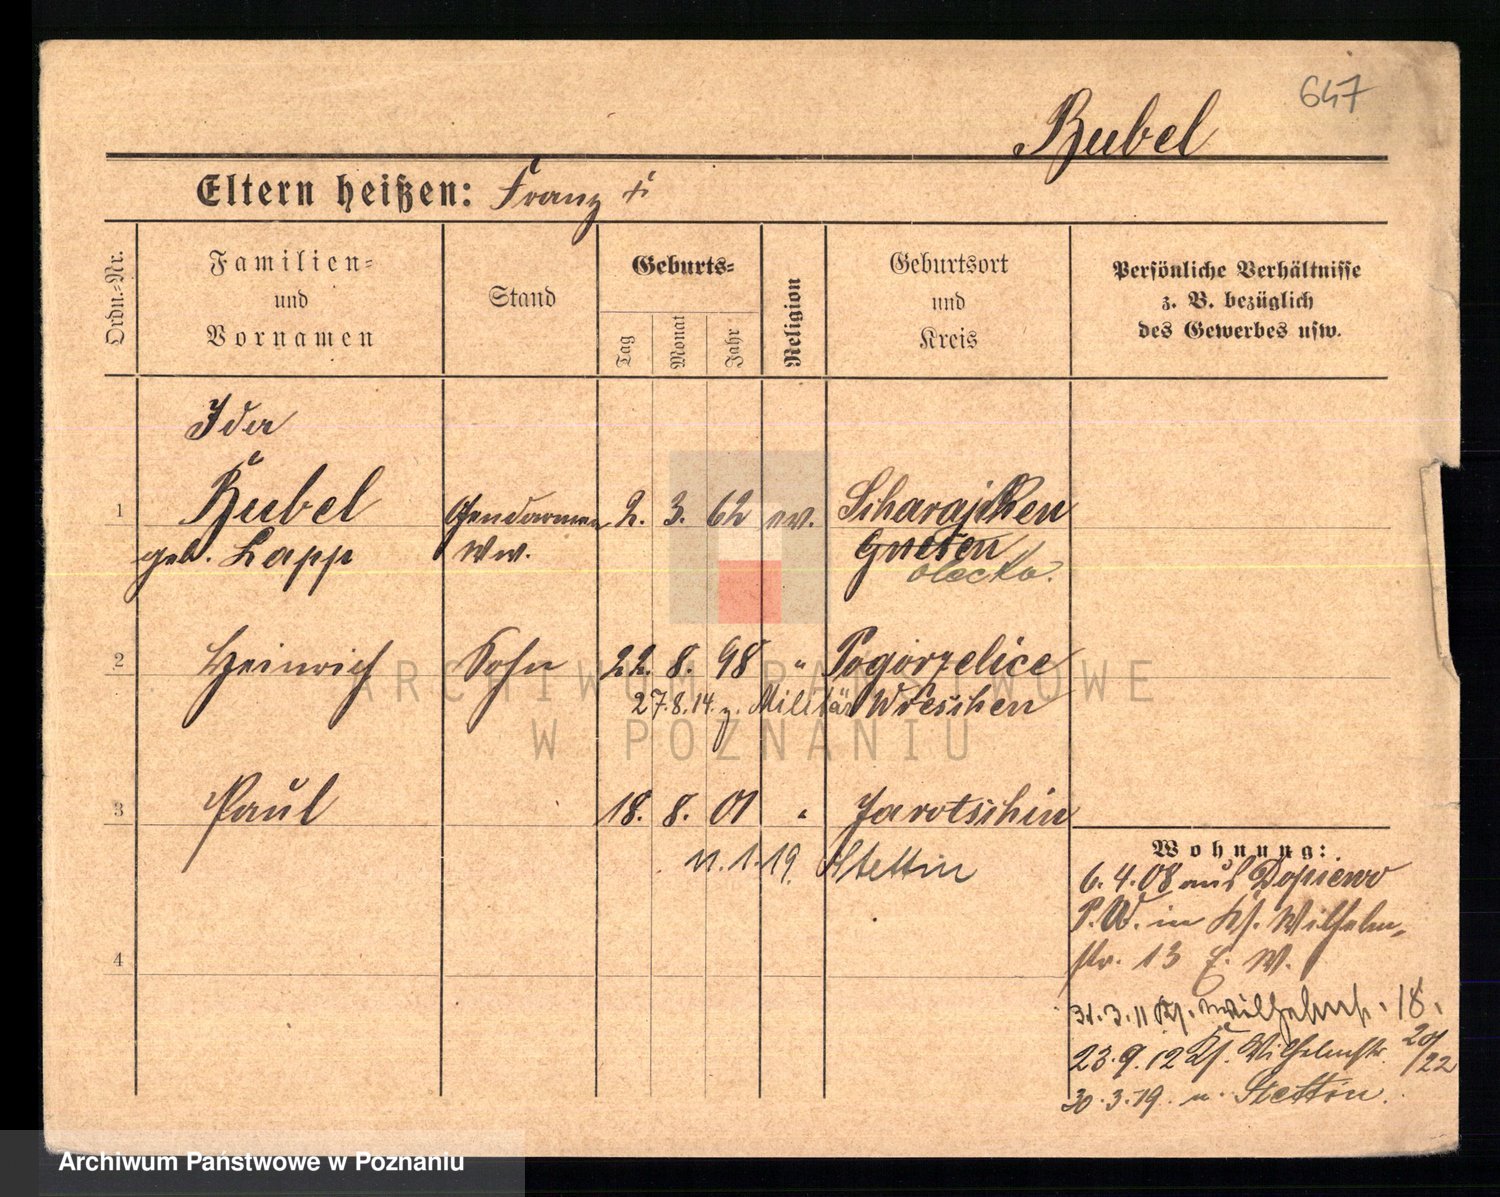 647
Bubel
Eltern heißen: Franz †
Ordn.-Nr.
Familien-
und
Vornamen
Stand
Geburts-
Tag
Monat
Jahr
Religion
Geburtsort
und
Kreis
Persönliche Verhältnisse
z. B. bezüglich
des Gewerbes usw.
Ida
1 Bubel Gendarmen 2. 3. 62 ev. Scharejken
geb. Lapp Ww. Gnesen
Olecko.
2 Heinrich Sohn 22. 8. 98 " Pogorzelice
27.8.14. z. Militär Wreschen
3 Paul 18. 8. 01 " Jarotschin
11.1.19. Stettin
4
Wohnung:
6.4.08 aus Dopiewo
P.W. in Wilhelm-
str. 13 E. W.
31.3.11 Wilhelmstr. 18.
23.9.12 Wilhelmstr. 20/22
30.3.19. n. Stettin.
ARCHIWUM PAŃSTWOWE
W POZNANIU
Archiwum Państwowe w Poznaniu